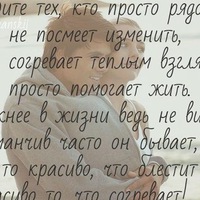 ите тех, кто просто рядо
не посмеет изменить,
согревает теплым взгля
просто помогает жить.
нее в жизни ведь не ви
манчив часто он бывает,
то красиво, что блестит
сиво то, что согревает!